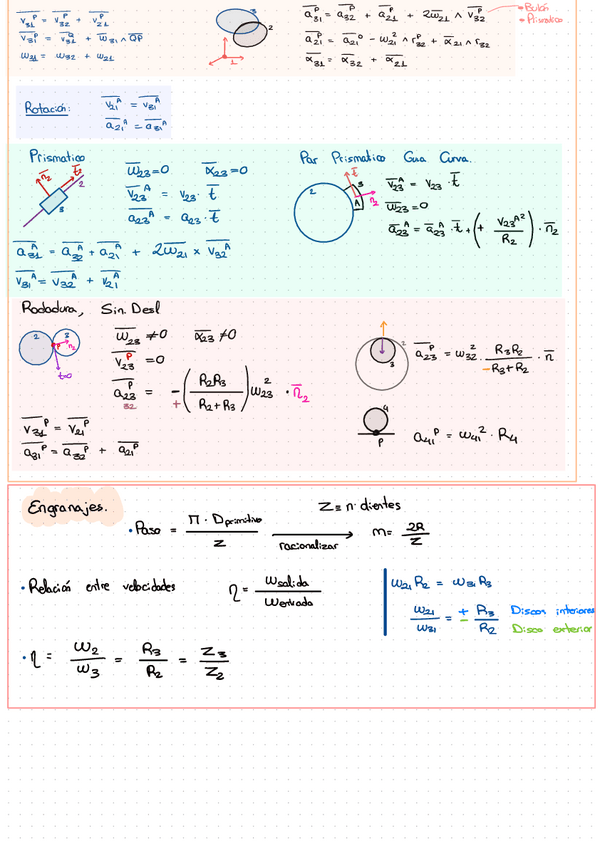 v₃₁ᴾ = v₃₂ᴾ + v₂₁ᴾ
v₃₁ᴾ = v₃₁ᵠ + ω₃₁ ∧ QP
ω₃₁ = ω₃₂ + ω₂₁
3
2
1
a₃₁ᴾ = a₃₂ᴾ + a₂₁ᴾ + 2ω₂₁ ∧ v₃₂ᴾ
• Bulón
• Prismatico
a₂₁ᴾ = a₂₁⁰ - ω₂₁² ∧ r₃₂ᴾ + α₂₁ ∧ r₃₂
α₃₁ = α₃₂ + α₂₁
Rotación:
v₂₁ᴬ = v₃₁ᴬ
a₂₁ᴬ = a₃₁ᴬ
Prismatico
n₂
t₂
2
3
ω₂₃ = 0
α₂₃ = 0
v₂₃ᴬ = v₂₃ · t
a₂₃ᴬ = a₂₃ · t
a₃₁ᴬ = a₃₂ᴬ + a₂₁ᴬ + 2ω₂₁ × v₃₂ᴬ
v₃₁ᴬ = v₃₂ᴬ + v₂₁ᴬ
Par Prismatico Guia Curva.
2
t
3
A
n₂
v₂₃ᴬ = v₂₃ · t
ω₂₃ = 0
a₂₃ᴬ = a₂₃ᴬ · t + (+ v₂₃ᴬ² / R₂) · n₂
Rodadura, Sin Desl
2
3
P
n₂
ω₂₃ ≠ 0
α₂₃ ≠ 0
v₂₃ᴾ = 0
a₂₃ᴾ = -(R₂R₃ / R₂+R₃) ω₂₃² · n₂
32
+
v₃₁ᴾ = v₂₁ᴾ
a₃₁ᴾ = a₃₂ᴾ + a₂₁ᴾ
2
3
a₂₃ᴾ = ω₃₂² · R₃R₂ / -R₃+R₂ · n
4
P
a₄₁ᴾ = ω₄₁² · R₄
Engranajes.
Z ≡ nº dientes
• Paso = Π · Dprimitivo / Z
racionalizar
m = 2R / Z
• Relación entre velocidades
η = ωsalida / ωentrada
ω₂₁ R₂ = ω₃₁ R₃
ω₂₁ / ω₃₁ = ± R₃ / R₂
Discos interiores
Disco exterior
• η = ω₂ / ω₃ = R₃ / R₂ = Z₃ / Z₂